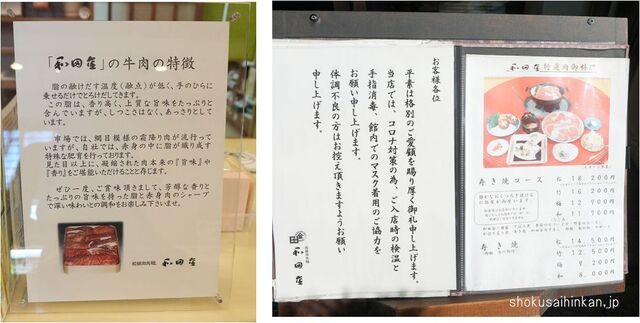 「和田金」の牛肉の特徴
脂の融けだす温度（融点）が低く、手のひらに
乗せるだけでとろけだしてきます。
この脂は、香り高く、上質な旨味をたっぷりと
含んでいますが、しつこさはなく、あっさりとして
います。
市場では、網目模様の霜降り肉が流行って
いますが、自社では、赤身の中に脂が織り成す
特殊な肥育を行っております。
見た目以上に、凝縮された肉本来の『旨味』や
『香り』をご堪能いただけることと存じます。
ぜひ一度、ご賞味頂きまして、芳醇な香りと
たっぷりの旨味を持った脂と赤身肉のシャープ
で深い味わいとの調和をお楽しみ下さいませ。
和田金
お客様各位
平素は格別のご愛顧を賜り厚く御礼申し上げます。
当店では、コロナ対策の為、ご入店時の検温と
手指消毒、館内でのマスク着用のご協力を
お願い申し上げます。
体調不良の方はお控え頂きますようお願い
申し上げます。
和田金
和田金
寿き焼コース
松 18,200円
竹 16,200円
梅 12,900円
和 11,700円
寿き焼
松 14,500円
竹 12,500円
梅 9,200円
和 8,000円
shokusaihinkan.jp